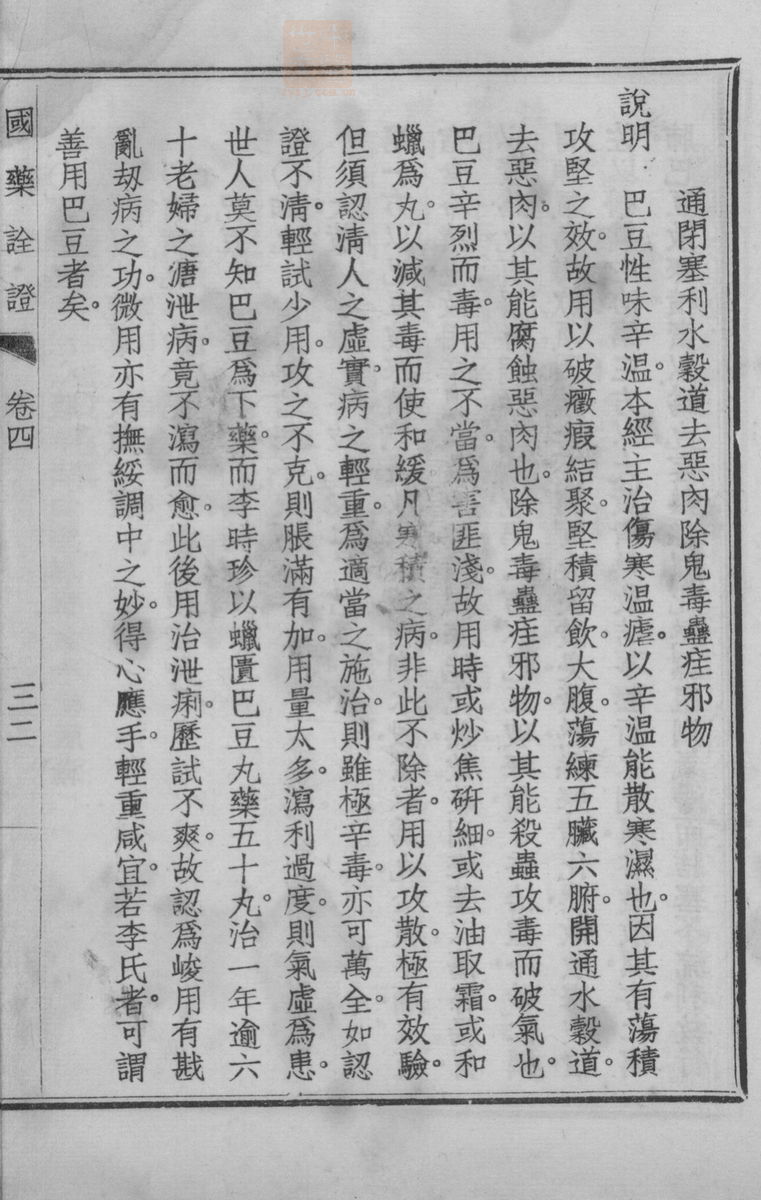 通閉塞利水穀道去惡肉除鬼毒蠱疰邪物
說明　巴豆性味辛温。本經主治傷寒温瘧。以辛温能散寒濕也。因其有蕩積
攻堅之效。故用以破癥瘕結聚。堅積留飲。大腹。蕩練五臟六腑。開通水穀道。
去惡肉。以其能腐蝕惡肉也。除鬼毒蠱疰邪物。以其能殺蟲攻毒而破氣也。
巴豆辛烈而毒。用之不當。爲害匪淺。故用時或炒焦硏細。或去油取霜。或和
蠟爲丸。以減其毒而使和緩。凡寒積之病。非此不除者。用以攻散。極有效驗。
但須認清人之虛實。病之輕重。爲適當之施治。則雖極辛毒。亦可萬全。如認
證不清。輕試少用。攻之不克。則脹滿有加。用量太多。瀉利過度。則氣虛爲患。
世人莫不知巴豆爲下藥。而李時珍以蠟匱巴豆丸藥五十丸。治一年逾六
十老婦之溏泄病。竟不瀉而愈。此後用治泄痢。歷試不爽。故認爲峻用有戡
亂刼病之功。微用亦有撫綏調中之妙。得心應手。輕重咸宜。若李氏者。可謂
善用巴豆者矣。
國藥詮證　卷四　三二